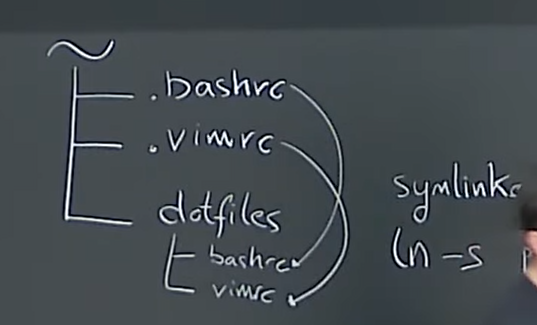 ~
.bashrc
.vimrc
dotfiles
bashrc
vimrc
symlinks
ln -s